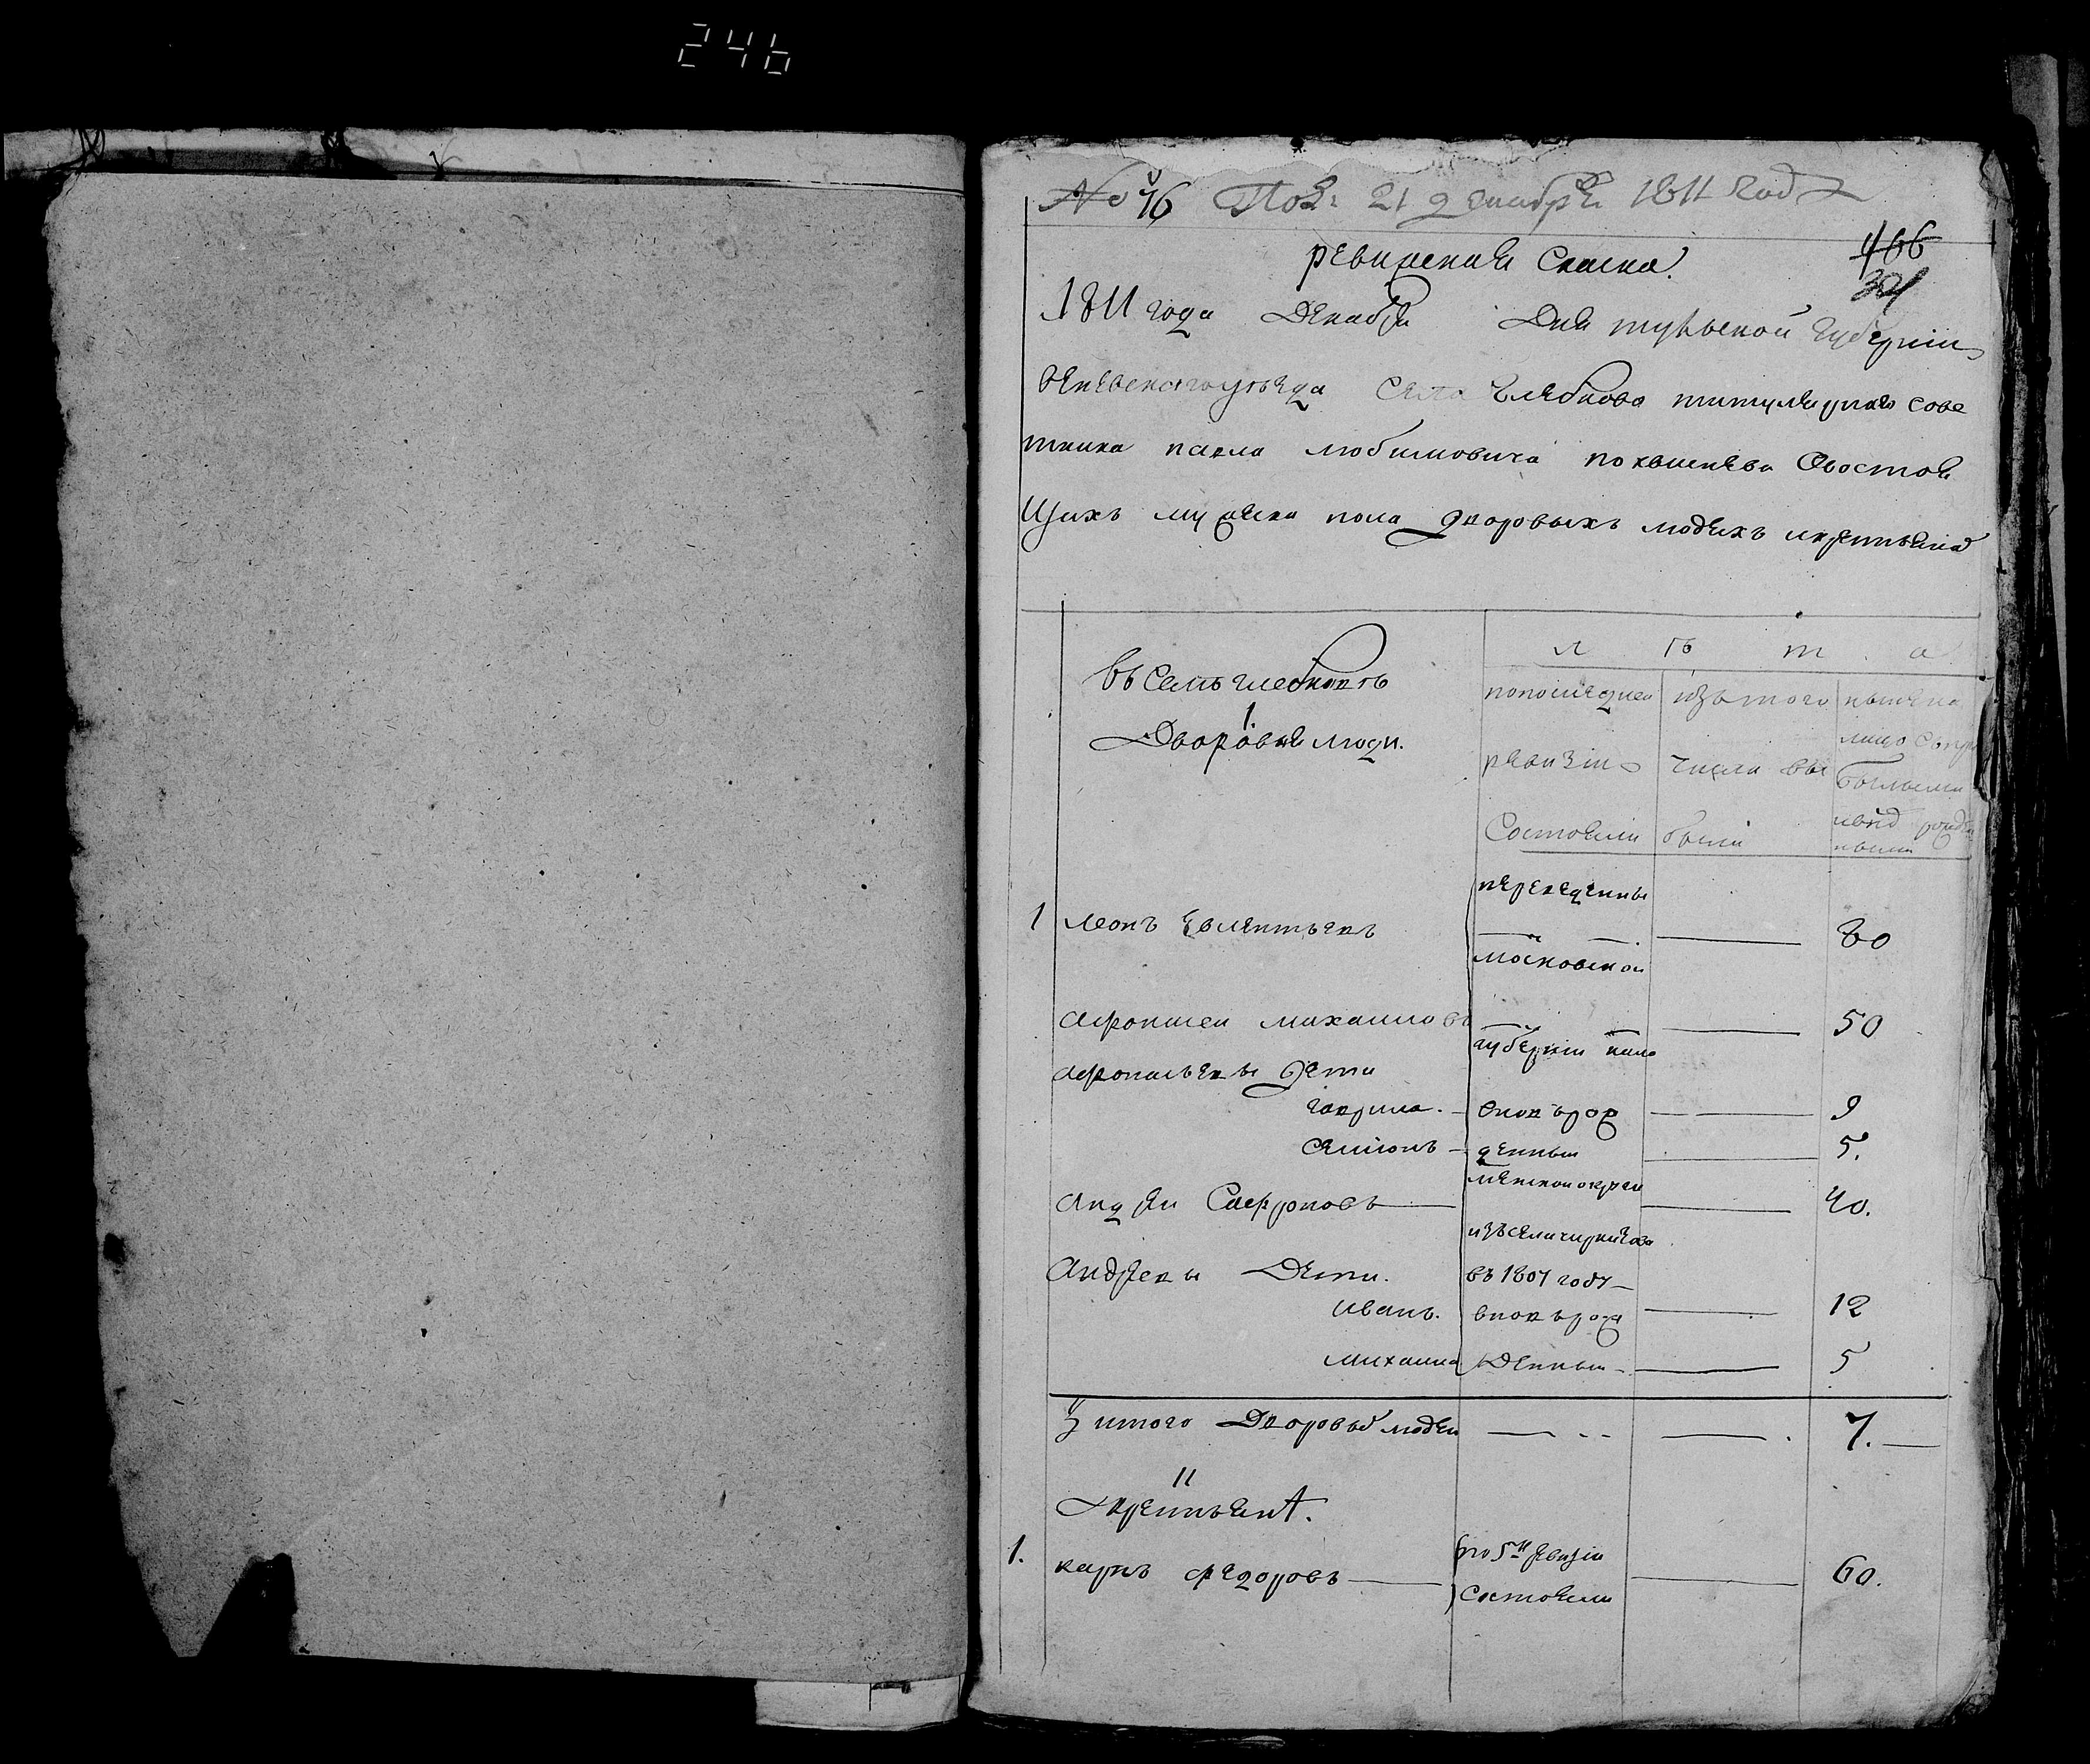 246
№ 46 Под: 21 декабря 1811 года
466
321
ревизская Скаска.
1811 года Декабря Дня тульской губернии
веневскаго уезда Села Хлебкова титулярнаго сове
тника павла любимовича похвиснева Осостоя
Щихъ мужска пола дворовыхъ людехъ икрестьянах
Въ Селъ Хлебковъ
л ѣ т а
I.
Дворовые люди.
попоследнеи ревизии Состояли
изътого числа вы были
ныне на лицо
1 леонъ Евлентьевъ
переведенны московской
80
Афонасеи михаиловъ
губернии
50
Афонасьевы Дети
гаврила. вновьрож 9
Семионъ денныи 5.
Андреи Сафроновъ 40.
изъсела
Андреевы Дети.
въ 1807 году
иванъ. вновьрож 12
михаила Денныи 5
итого Дворовых людеи 7.
II
Крестьяня.
1. карпъ федоровъ
по 5й ревизии
состояли
60.